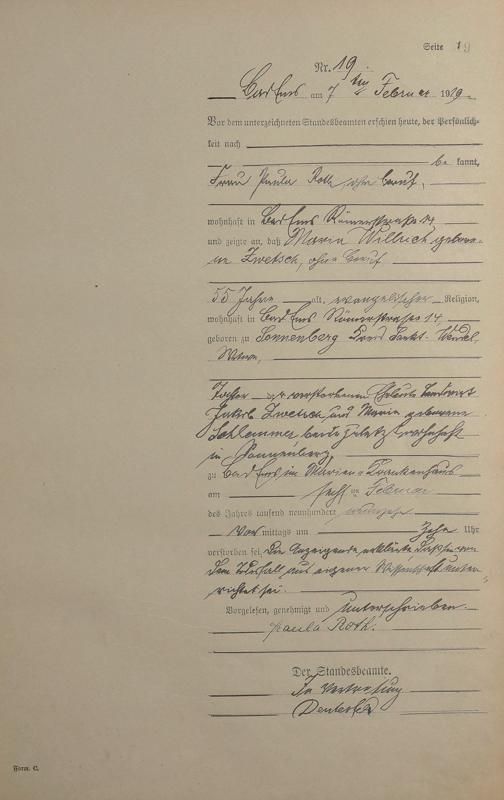 Seite 19
Nr. 19.
Bad Ems am 7ten Februar 1919.
Vor dem unterzeichneten Standesbeamten erschien heute, der Persönlich-
keit nach
be kannt,
Frau Paula Roth ohne Beruf,
wohnhaft in Bad Ems Römerstraße 14,
und zeigte an, daß Maria Willrich gebore-
ne Zwetsch, ohne Beruf
55 Jahre alt, evangelischer Religion,
wohnhaft in Bad Ems Römerstrasse 14
geboren zu Sonnenberg Kreis Sankt-Wendel,
Witwe,
Tochter der verstorbenen Eheleute Landwirt
Jakob Zwetsch und Maria geborene
Schlemmer beide zuletzt wohnhaft
in Sonnenberg
zu Bad Ems im Marien-Krankenhaus
am sechsten Februar
des Jahres tausend neunhundert neunzehn
Vor mittags um zehn Uhr
verstorben sei. Die Anzeigende erklärte daß sie von
dem Todesfall aus eigener Wissenschaft unter-
richtet sei.
Vorgelesen, genehmigt und unterschrieben.
Paula Roth.
Der Standesbeamte.
In Vertretung
Form. C.